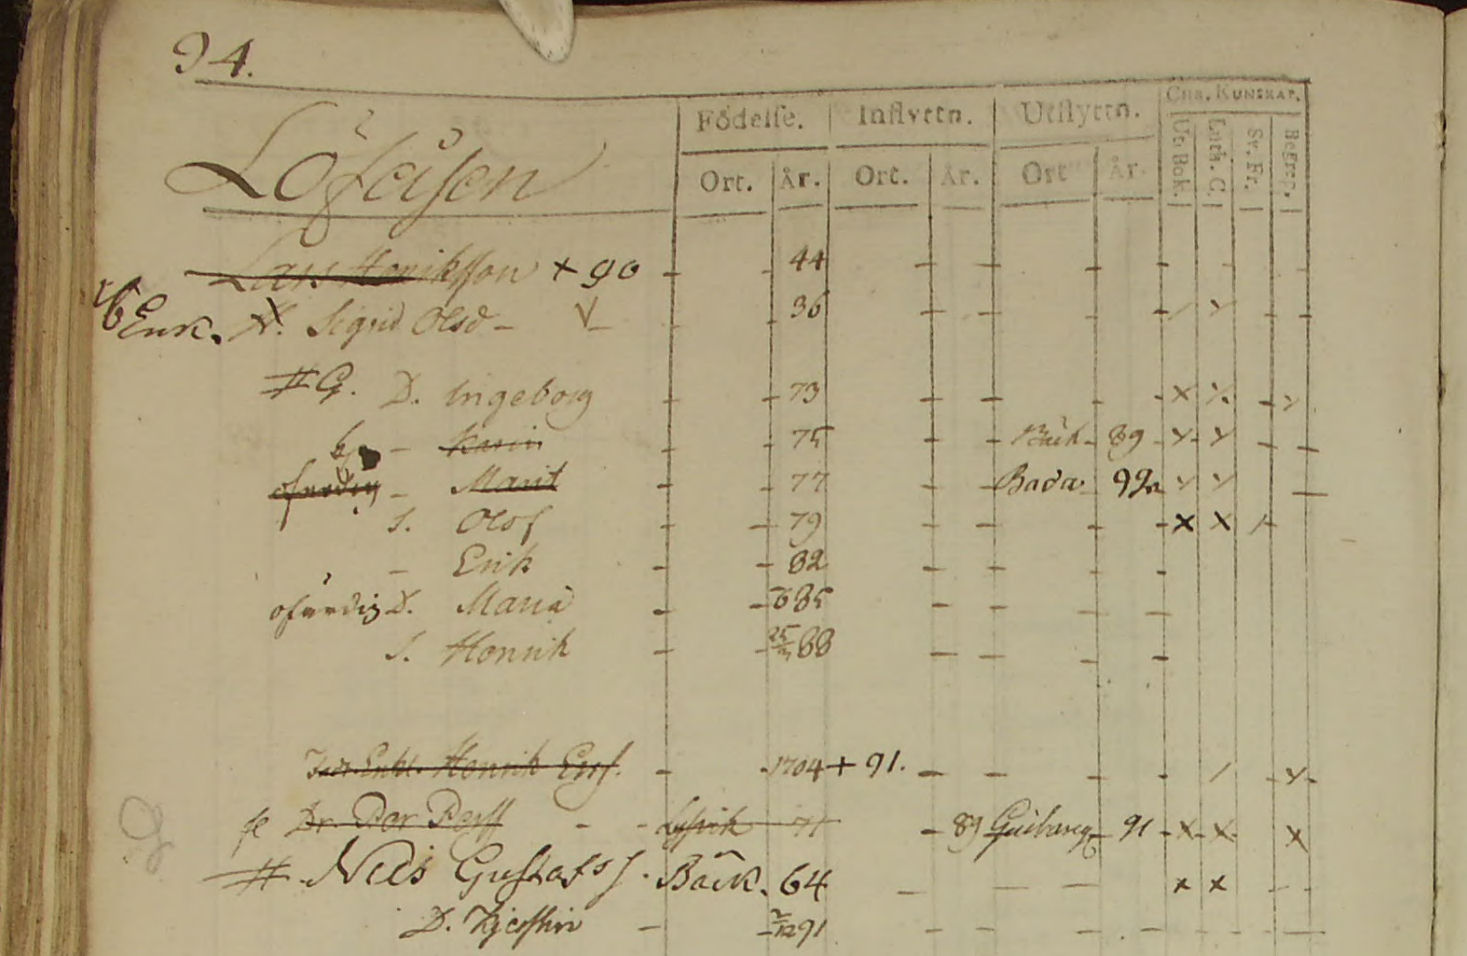 94.
Födelse. Inflyttn. Utflyttn. Chr. Kunskap.
Löfåsen
Ort. År. Ort. År. Ort År. Ut. Bok. Luth. C. Sv. Fr. Begrep.
Lars Henriksson + 90 - - 44 - - - - - -
Enk. H. Sigrid Olsd - - - 36 - - - -
# G. D. Ingeborg - - 73 - - - - x
- Karin - 75 - - Bäck - 89
ofärdig - Marit - - 77 - - Bada 92
S. Olof - - 79 - - - - x x
- Erik - - 82 - - - -
ofärdig D. Maria - - 85 - - - -
S. Henrik - - 88 - - - -
Henrik Ersf. - 1704 + 91. - - - -
Dr. Per Persf - - 71 - 89 91 - x x x
# Nils Gustafsf. Bäck. 64 - - - x x - -
D. Kjerstin - - 2/12 91 - - - - - - -